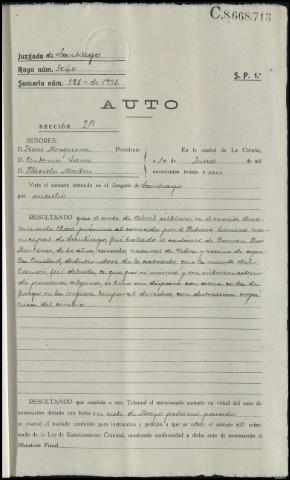 C.8.668.713
Juzgado de Santiago
Royo núm. 3040
Sumario núm. 128 - de 1936
S. P. 1.ª
AUTO
SECCIÓN 2ª
SEÑORES:
D. Presidente
D. Antonio
D. Plácido Martín
En la ciudad de La Coruña,
a de Junio de mil
novecientos treinta y seis
Visto el sumario instruido en el Juzgado de Santiago
por suicidio
RESULTANDO que el once de Abril último en el monte deno-
minado Chao próximo al conocido por el Pedroso término mu-
nicipal de Santiago, fué hallado el cadáver de Ramón
Martínez de años, casado natural de y vecino de aque-
lla Ciudad, deduciéndose de lo actuado que la muerte del
Ramón fué debida a que por sí mismo y sin intervención
de persona alguna, se hizo un disparo con arma corta de
fuego en la región temporal derecha con destrucción orgá-
nica del cerebro
RESULTANDO que remitido a este Tribunal el mencionado sumario en virtud del auto de
terminación dictado con fecha siete de Mayo próximo pasado
se evacuó el traslado conferido para instrucción y petición a que se refiere el artículo 627 refor-
mado de la Ley de Enjuiciamiento Criminal, mostrando conformidad a dicho auto de terminación el
Ministerio Fiscal